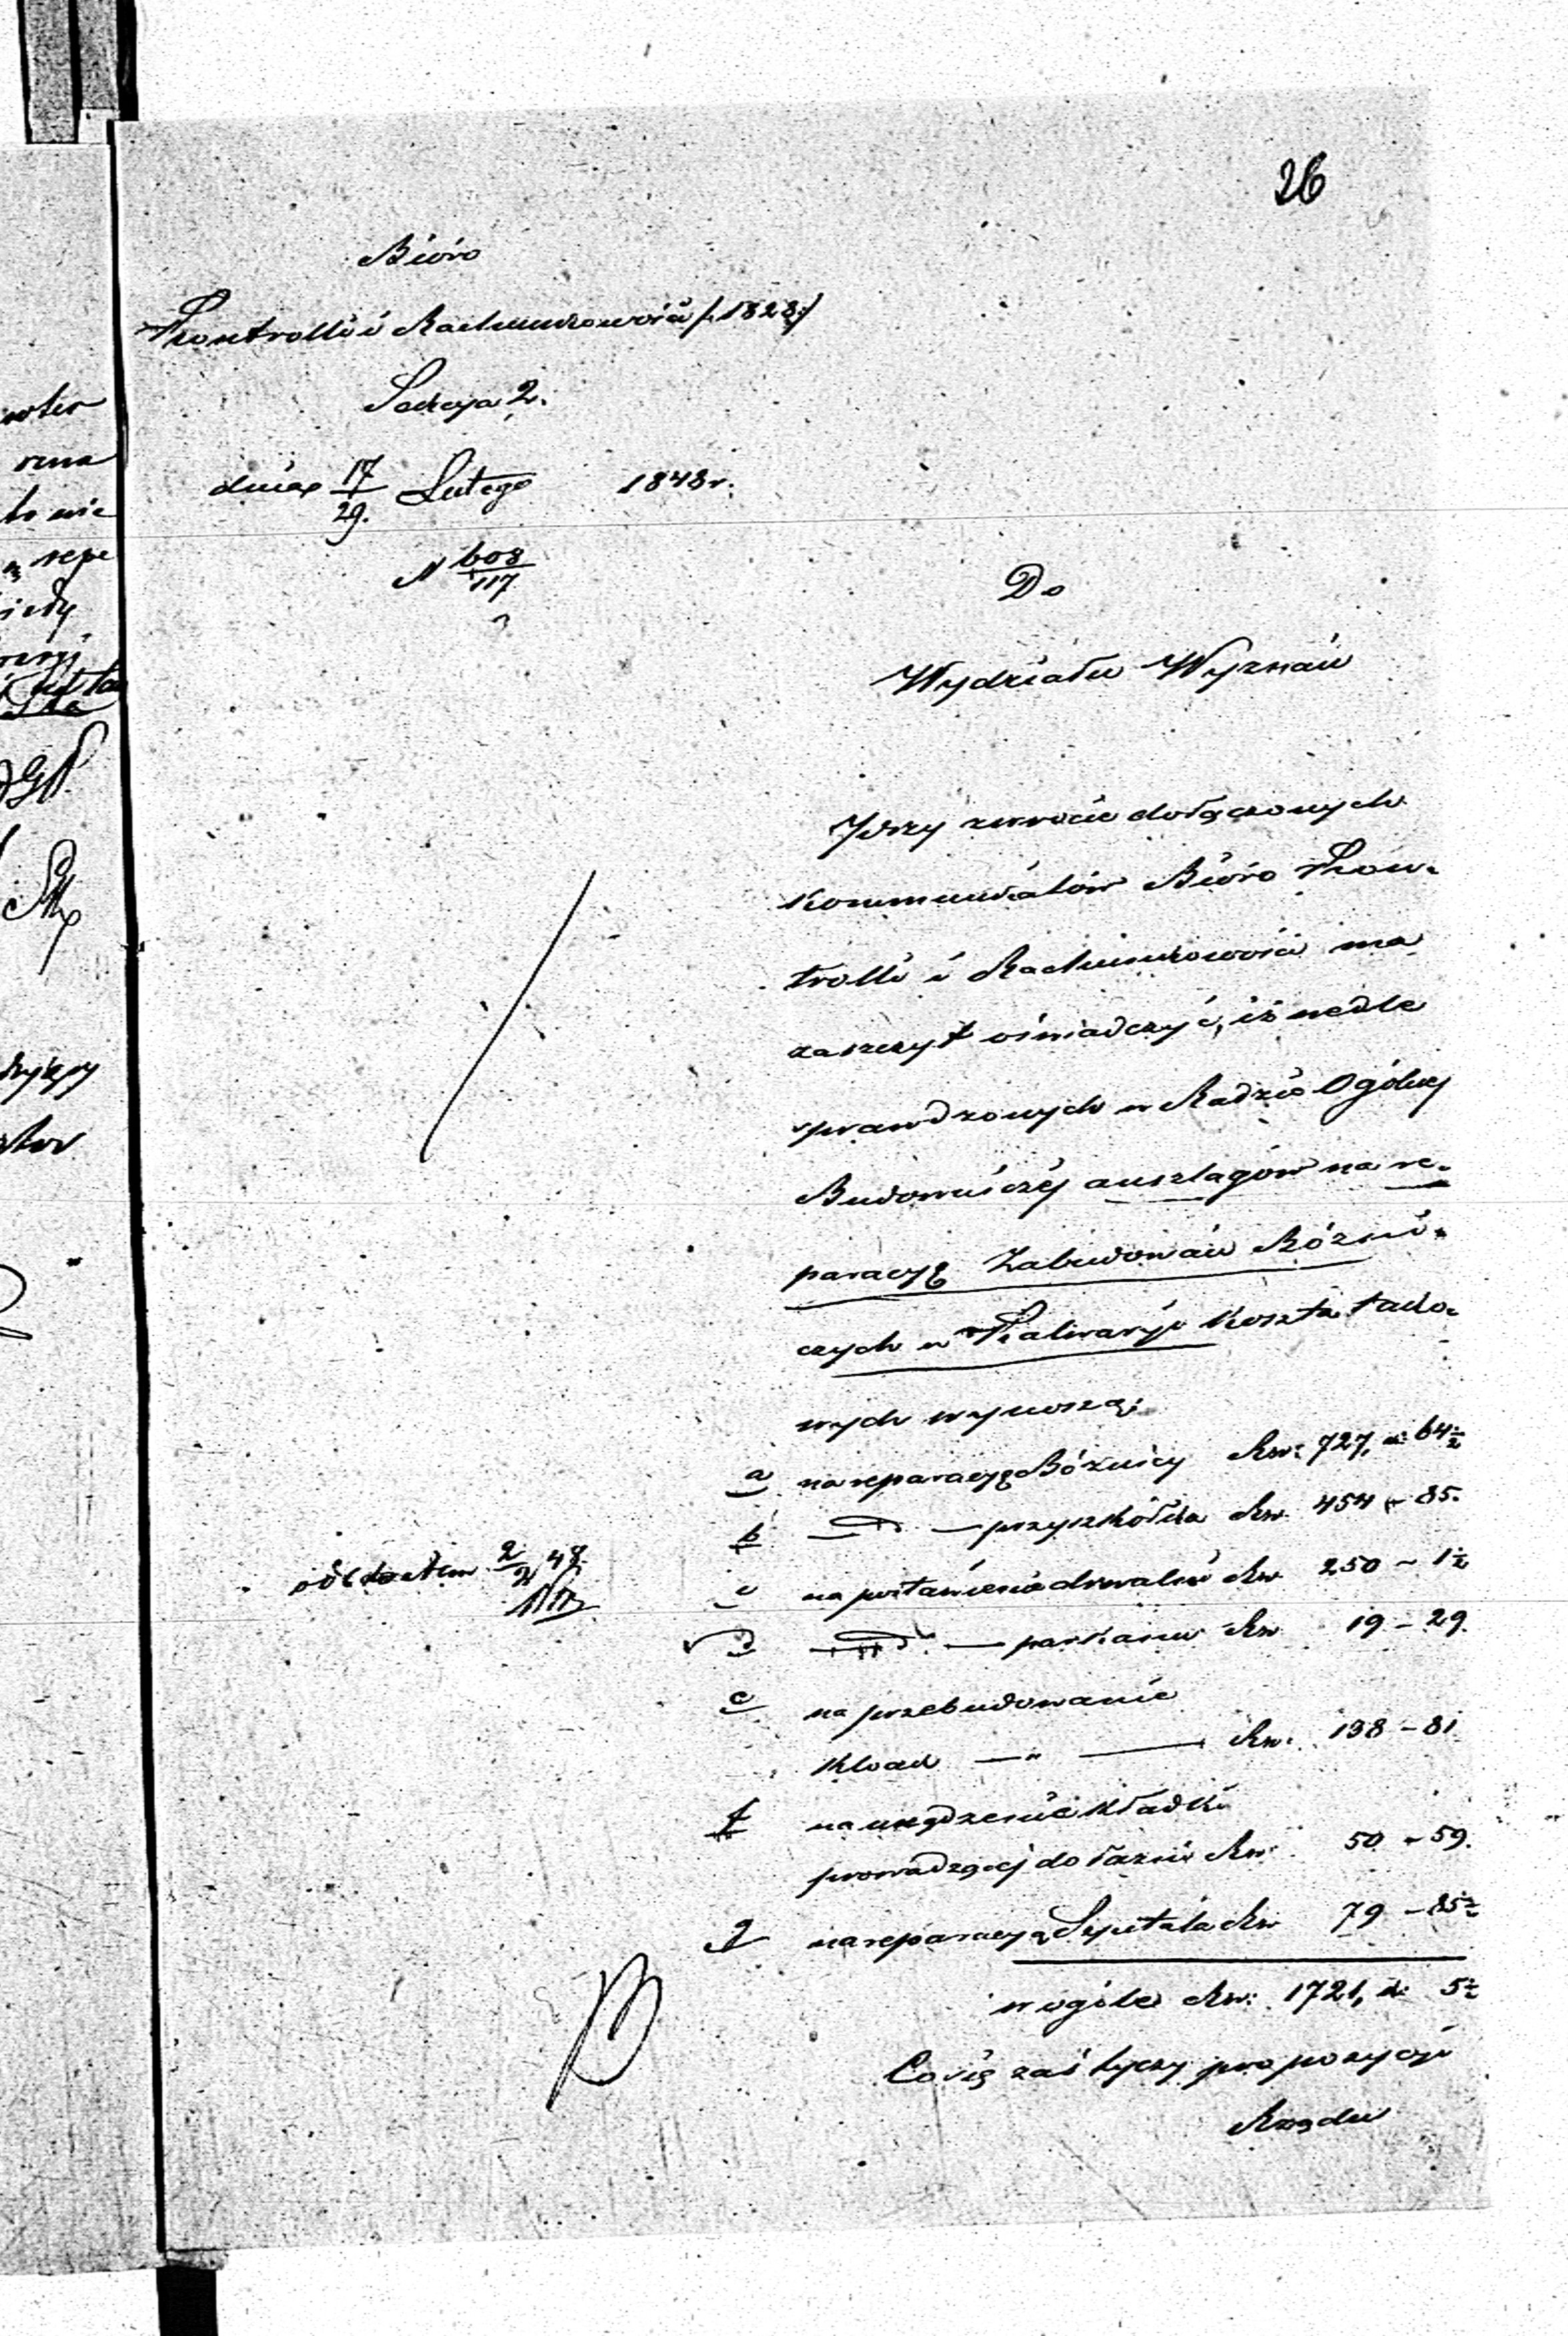 26
Bióro
Kontrolli i Rachunkowości /:1828:/
Sekcya 2.
dnia 17/29. Lutego 1848 r.
N 608/117
Do
Wydziału Wyznań
Przy zwrocie dołączonych
kommunikatów Bióro Kon-
trolli i Rachunkowości ma
zaszczyt oświadczyć, iż wedle
sprawdzonych w Radzie Ogólnej
Budowniczéj anszlagów na re-
paracyą Zabudowań Bóżni-
czych w Kalwaryi koszta tako-
wych wynoszą:
a na reparacyą Bóżnicy Rsr: 727, k: 64½
b — D — przyszkółka Rsr. 454 - 85.
c na postawienie drwalni Rsr. 250 - 1½
d — D — parkanu Rsr 19 - 29.
e na przebudowanie
kloak — " — Rsr. 138 - 81
f na urządzenie kładki
prowadzącej do łaźni Rsr. 50 - 59.
g na reparacyą Szpitala Rsr 79 - 85½
w ogóle Rsr: 1721, k: 5½
Co się zaś tyczy propozycyi
Rządu